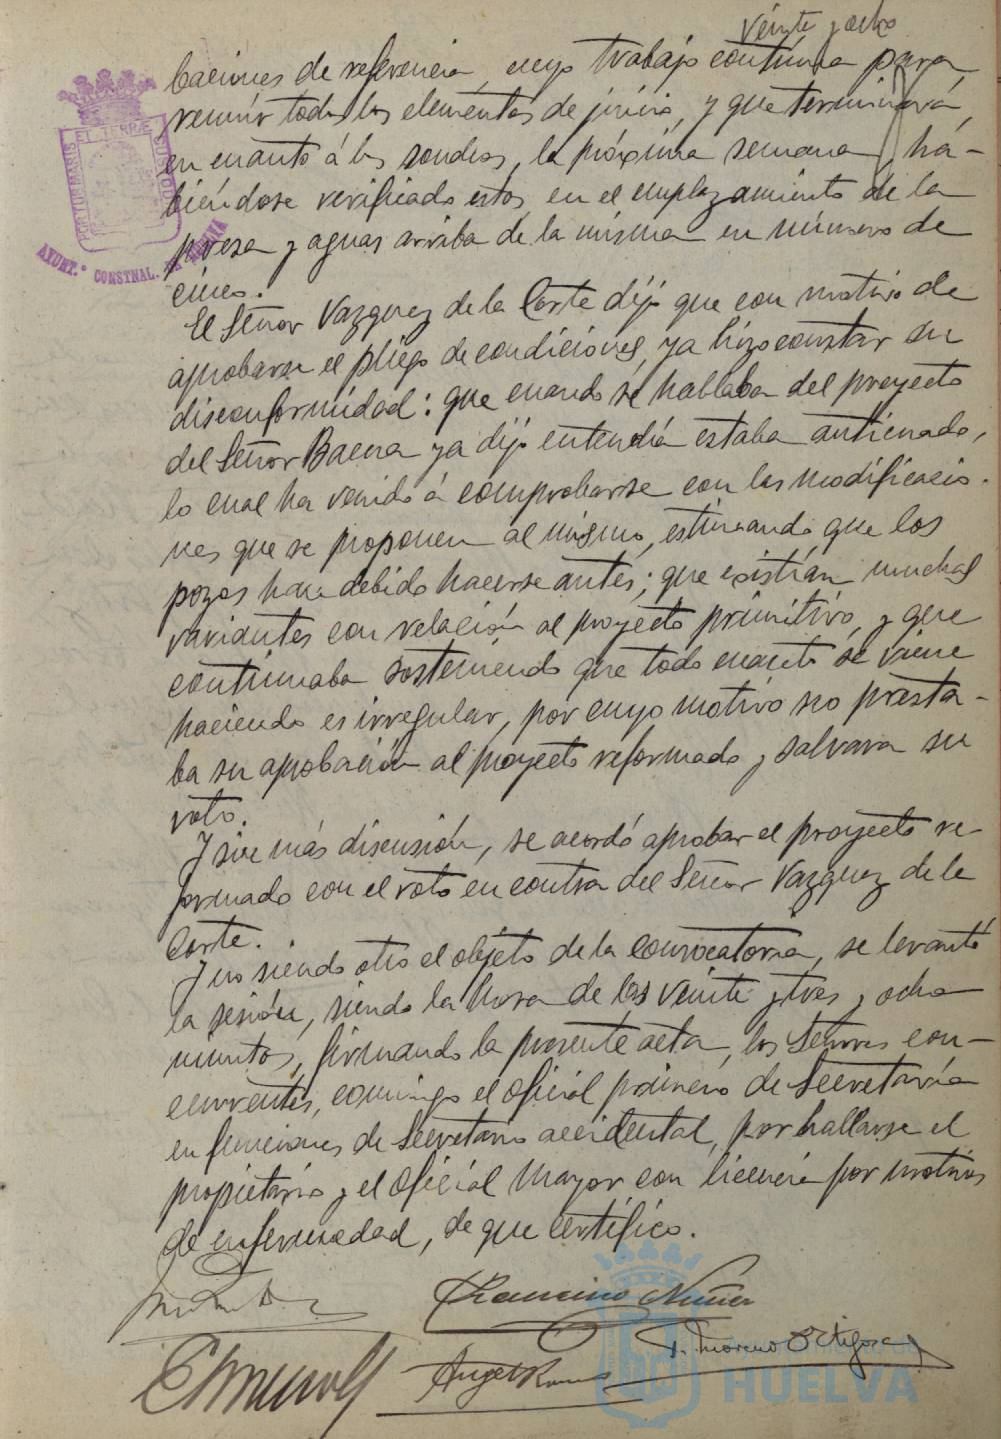 veinte y ocho
baciones de referencia, cuyo trabajo continúa para
reunir todos los elementos de juicio, y que terminará,
en cuanto á los sondeos, la próxima semana, ha-
biéndose verificado estos en el emplazamiento de la
presa y aguas arriba de la misma en número de
cinco.
El Señor Vazquez de la Corte dijo que con motivo de
aprobarse el pliego de condiciones, ya hizo constar su
disconformidad: que cuando se hablaba del proyecto
del Señor Baena ya dijo entendia estaba anticuado,
lo cual ha venido á comprobarse con las modificacio-
nes que se proponen al mismo, estimando que los
pozos han debido hacerse antes; que existian muchas
variantes con relación al proyecto primitivo, y que
continuaba sosteniendo que todo cuanto se viene
haciendo es irregular, por cuyo motivo no presta-
ba su aprobación al proyecto reformado y salvara su
voto.
Y sin más discusión, se acordó aprobar el proyecto re-
formado con el voto en contra del Señor Vazquez de la
Corte.
Y no siendo otro el objeto de la convocatoria, se levantó
la sesión, siendo la hora de las veinte y tres y ocho
minutos, firmando la presente acta, los Señores con-
currentes, conmigo el oficial primero de Secretaría
en funciones de Secretario accidental, por hallarse el
propietario y el oficial mayor con licencia por motivos
de enfermedad, de que certifico.
Francisco Nuñez
F. Moreno Ortigosa
Angel Ramos
AYUNT.º CONSTNAL. DE HUELVA
HUELVA